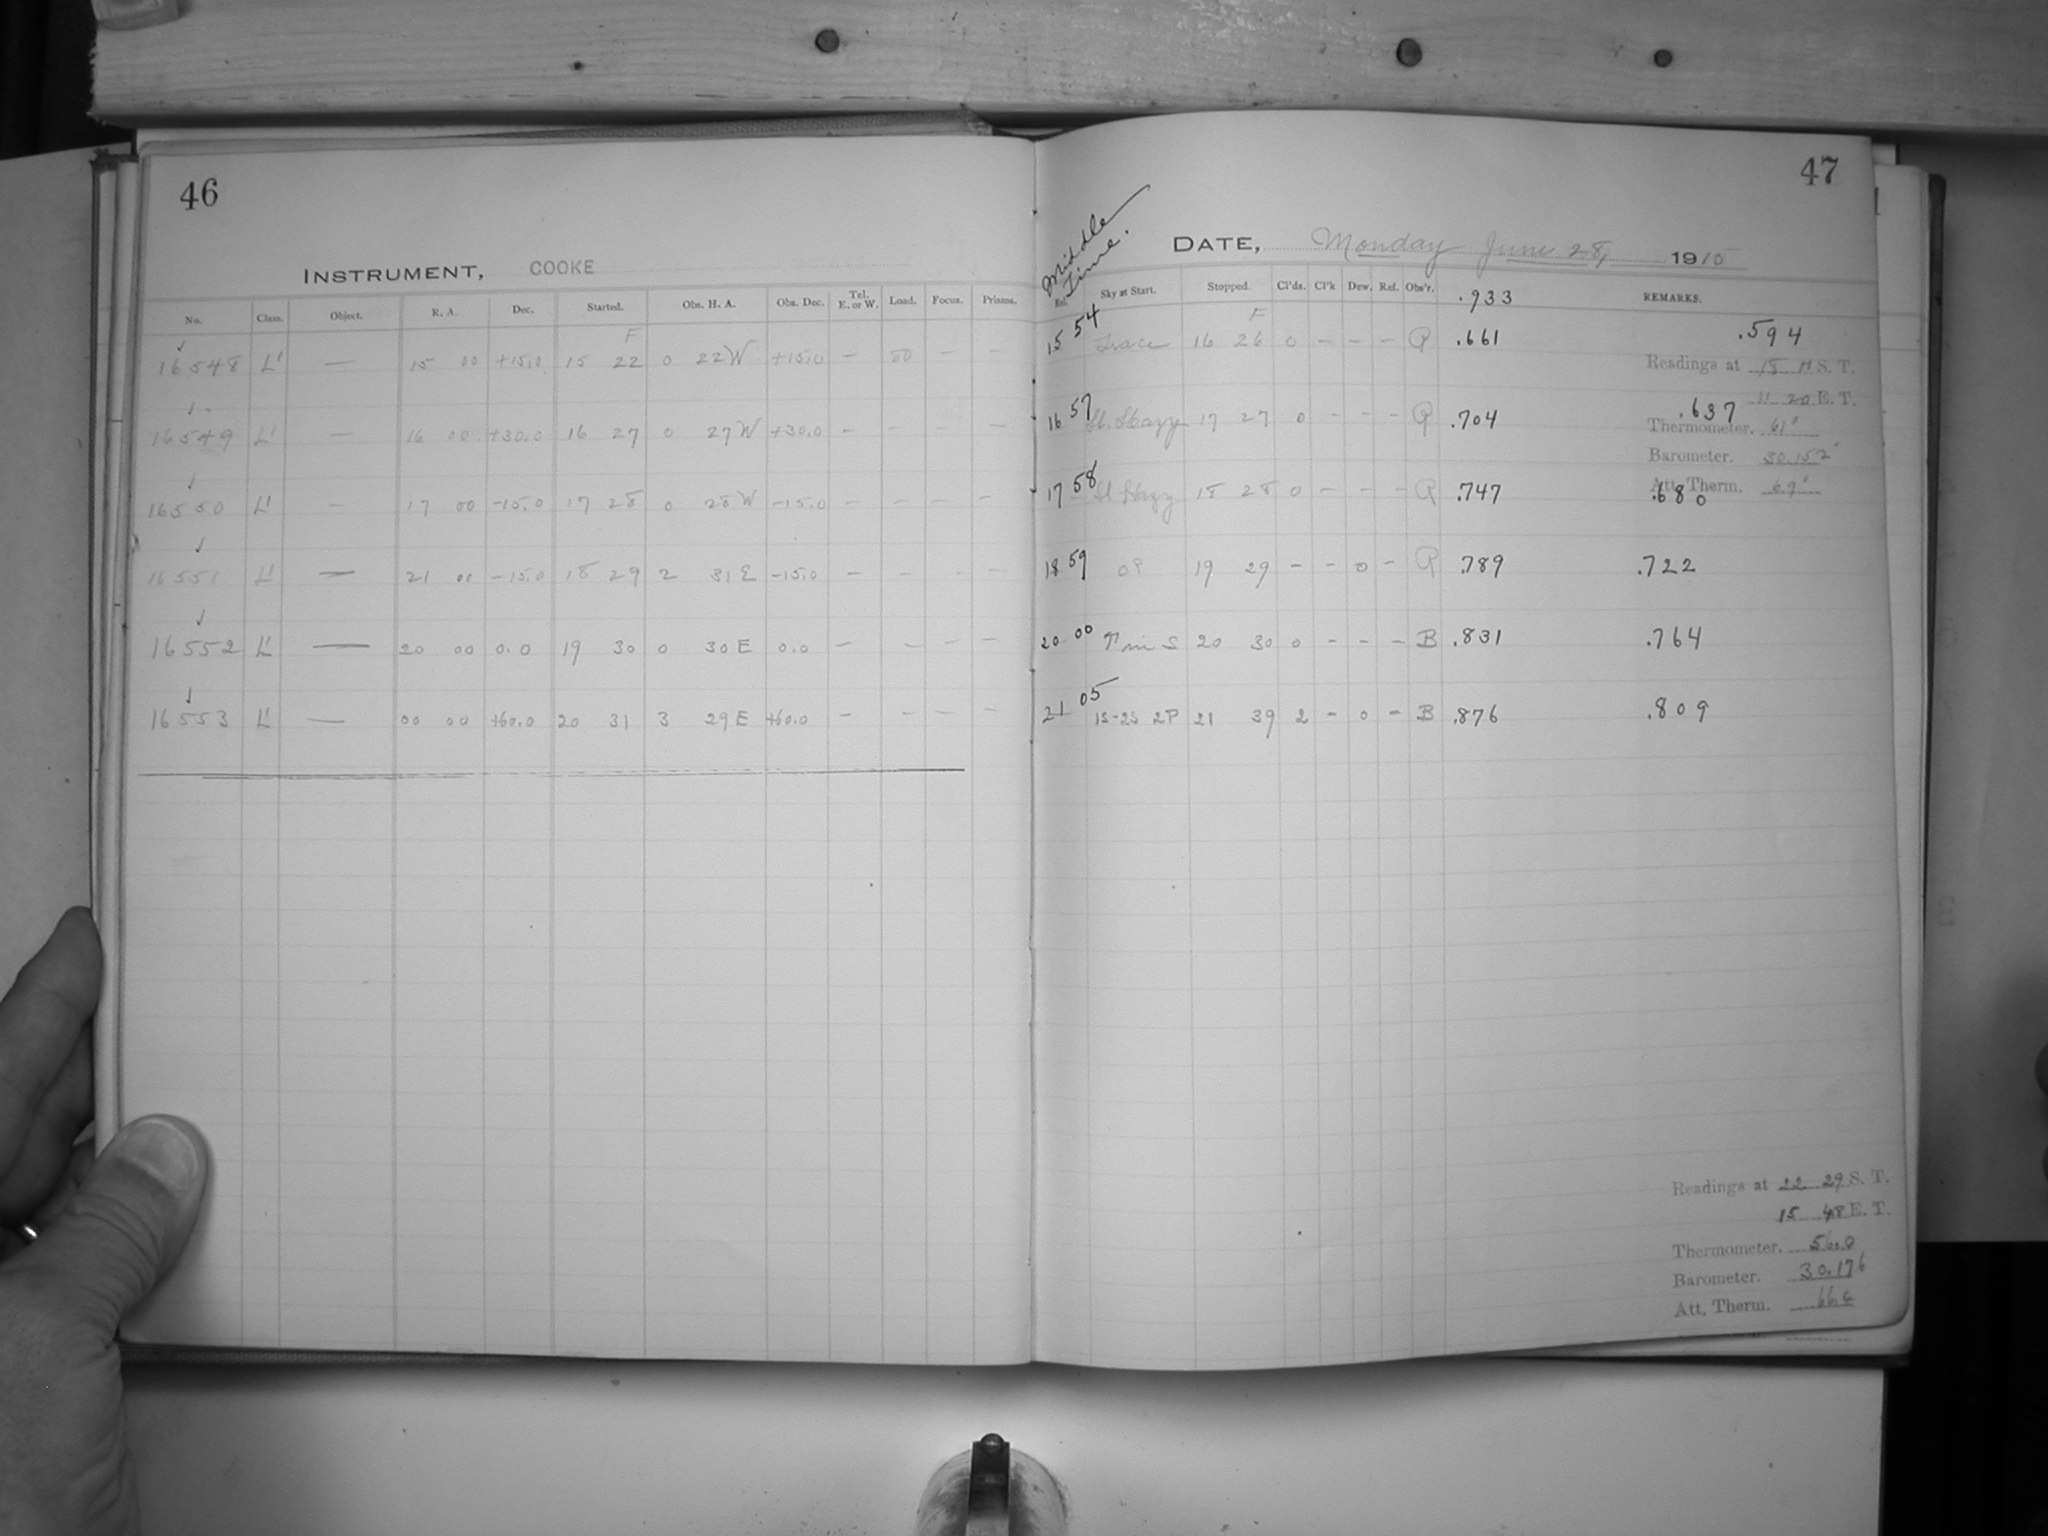 46
INSTRUMENT, COOKE
No. Class. Object. R. A. Dec. Started. Obs. H. A. Obs. Dec. Tel. E. or W. Load. Focus. Prisms.
F
16548 L' — 15 00 +15.0 15 22 0 22 W +15.0 — 50 — —
16549 L' — 16 00 +30.0 16 27 0 27 W +30.0 — — — —
16550 L' — 17 00 -15.0 17 28 0 28 W -15.0 — — — —
16551 L' — 21 00 -15.0 18 29 2 31 E -15.0 — — — —
16552 L' — 20 00 0.0 19 30 0 30 E 0.0 — — — —
16553 L' — 00 00 +60.0 20 31 3 29 E +60.0 — — — —
47
Middle Time.
DATE, Monday June 28, 1915
Sky at Start. Stopped. Cl'ds. Cl'k Dew. Ref. Obs'r. .933 REMARKS.
F
15 54 Trace 16 26 0 — — — .661 .594
Readings at 15 11 S. T.
11 20 E. T.
16 57 Sl. Hazy 17 27 0 — — — .704 .637
Thermometer. 61°
Barometer. 30.152
17 58 Sl Hazy 18 28 0 — — — .747 .680
Att. Therm. 69°
18 59 19 29 — — 0 — .789 .722
20 00 in S 20 30 0 — — — B .831 .764
21 05 1S-2S 2P 21 39 2 — 0 — B .876 .809
Readings at 22 29 S. T.
15 48 E. T.
Thermometer. 56.0
Barometer. 30.176
Att. Therm. 66.